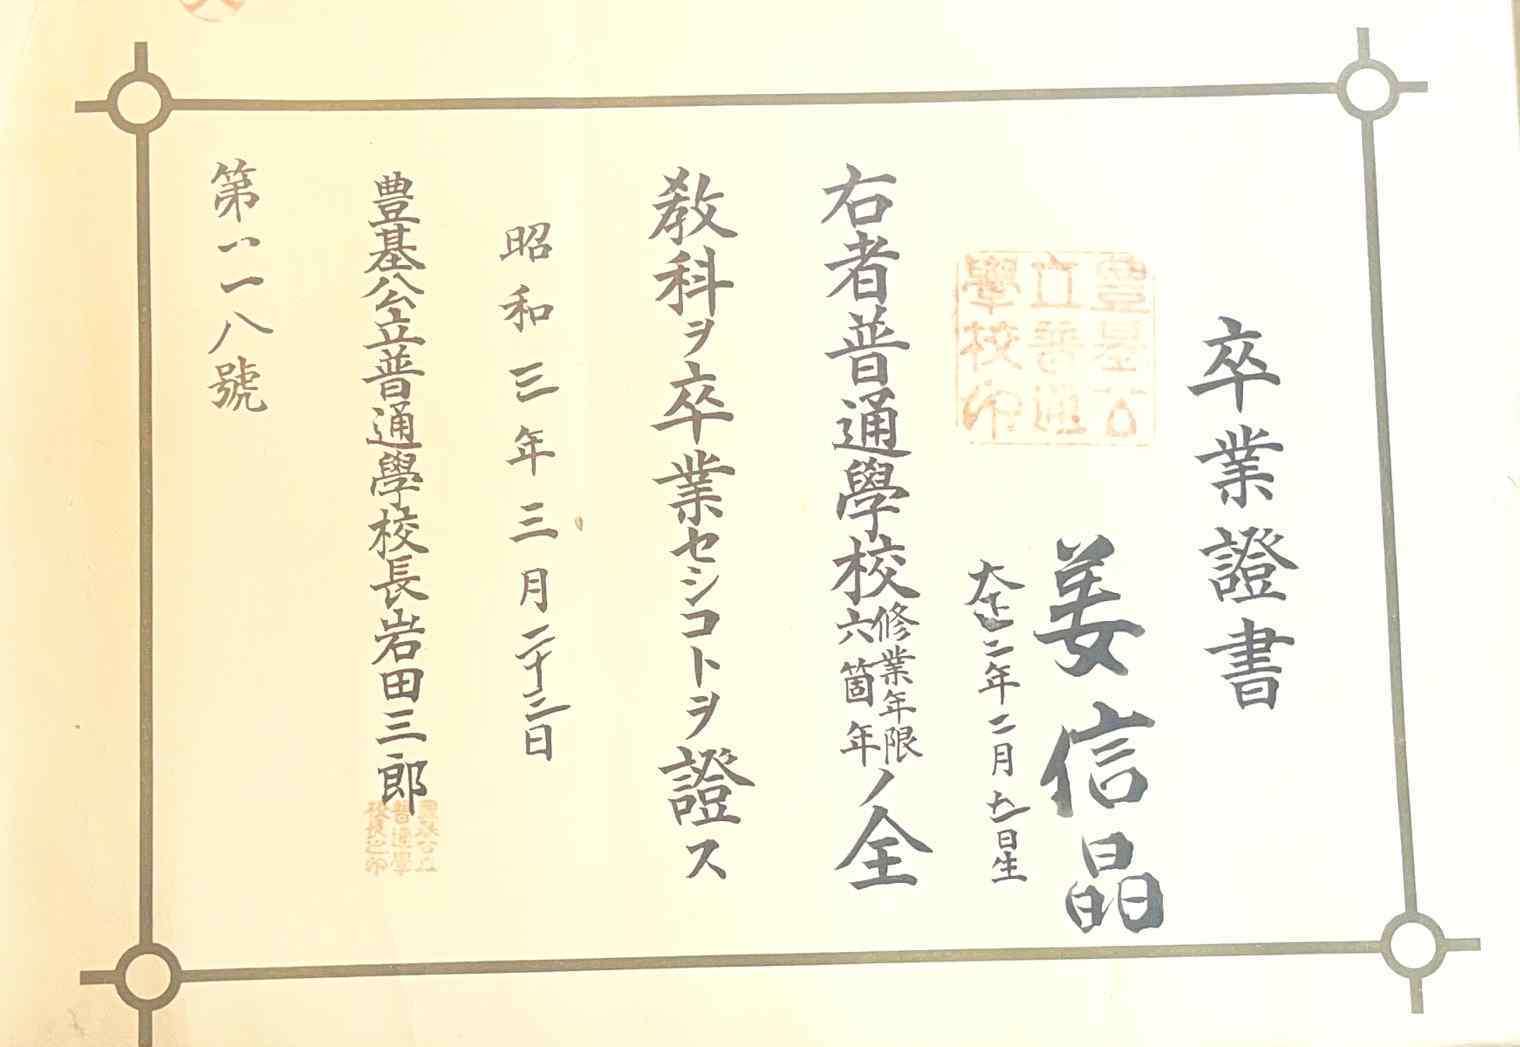 卒業證書
豊基公
立普通
學校印
姜信晶
大正二年二月廿一日生
右者普通學校修業年限六箇年ノ全
教科ヲ卒業セシコトヲ證ス
昭和三年三月二十二日
豊基公立普通學校長岩田三郎
豊基公立
普通學
校長之印
第一一八號